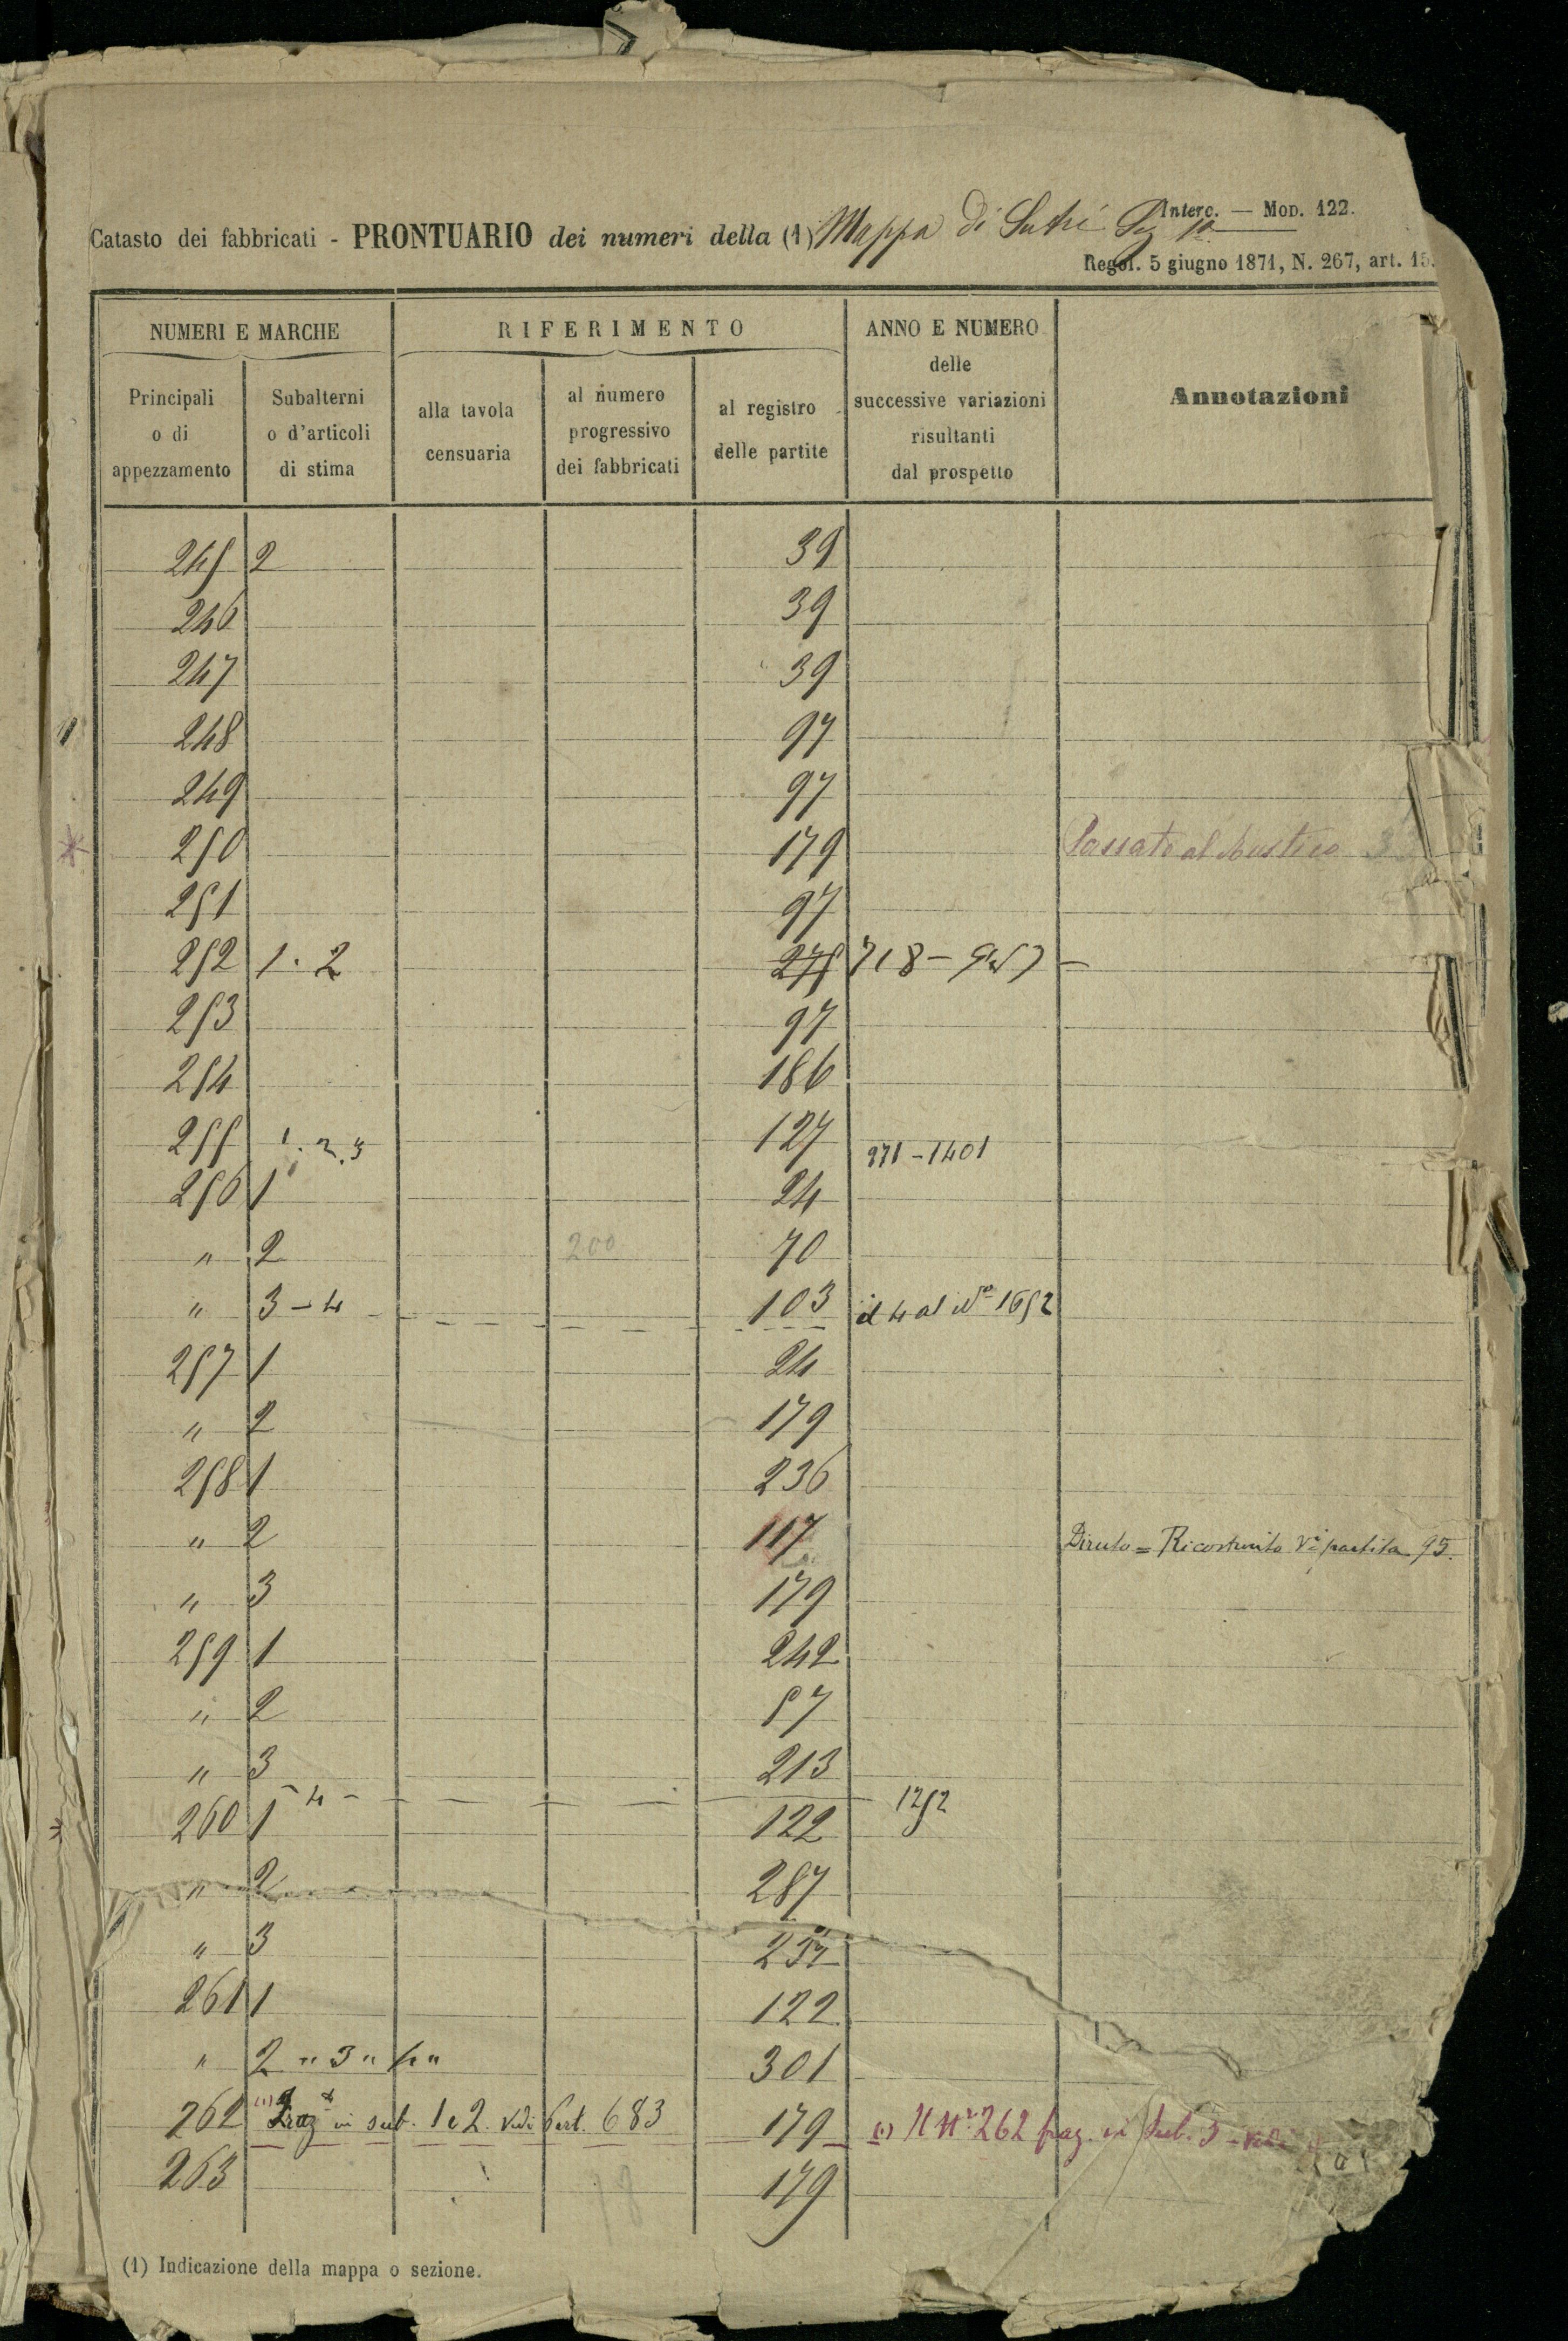 Interc. — Mod. 122.
Catasto dei fabbricati - PRONTUARIO dei numeri della (1) Mappa di Sutri Sez 1ª
Regol. 5 giugno 1871, N. 267, art. 15.
NUMERI E MARCHE RIFERIMENTO ANNO E NUMERO delle successive variazioni risultanti dal prospetto Annotazioni
Principali o di appezzamento Subalterni o d'articoli di stima alla tavola censuaria al numero progressivo dei fabbricati al registro delle partite
245 2 39
246 39
247 39
248 97
249 97
250 179 Passato al Rustico
251 97
252 1. 2 275 718 -
253 97
254 186
255 1. 2. 3 127 971-1401
256 1 24
" 2 200 70
" 3-4 103 il 4 al Nº 1652
257 1 24
" 2 179
258 1 236
" 2 117 Diruto = Ricostruito Vi partita 95.
" 3 179
259 1 242
" 2 57
" 3 213
- 4 - 1252
260 1 122
" 2 287
" 3
261 1 122
" 2 " 3 " 4 " 301
262 (1) Fraz in sub. 1 e 2. Vedi Part. 683 179 (1) Il Nº 262 fraz. in Sub. 3 - vedi
263 179
(1) Indicazione della mappa o sezione.